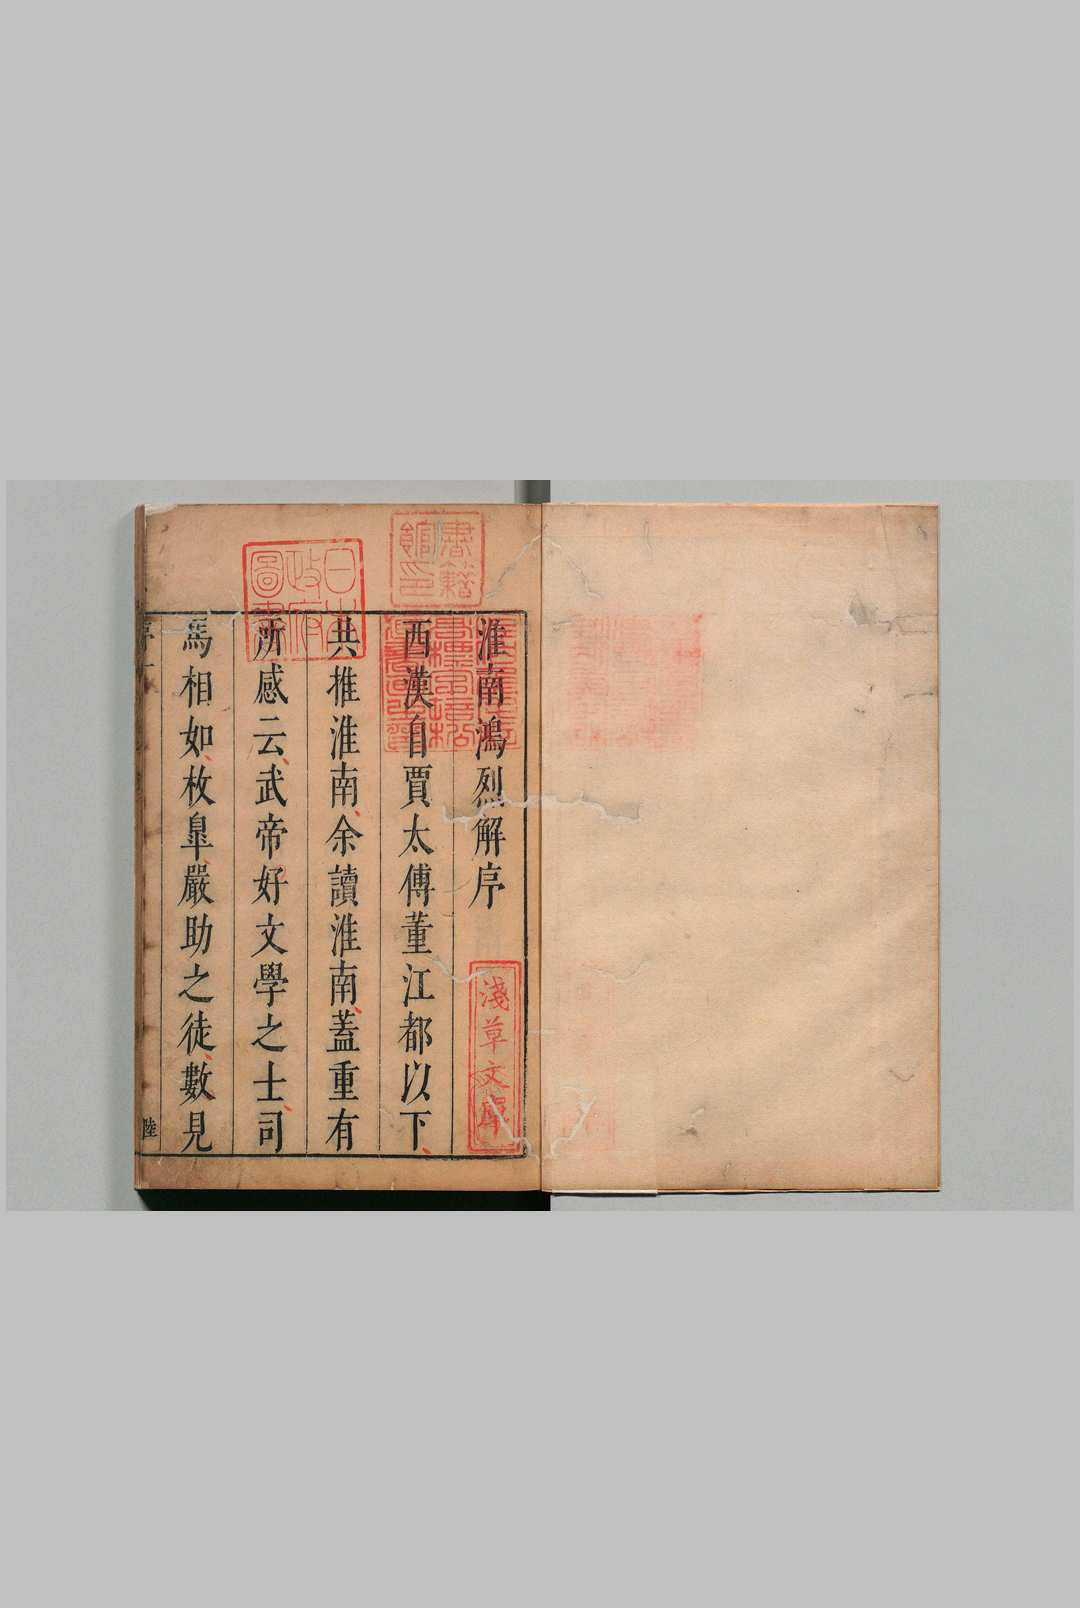 淮南鴻烈解序
西漢自賈太傅董江都以下
共推淮南余讀淮南蓋重有
所感云武帝好文學之士司
馬相如枚皐嚴助之徒數見
序一
陸
書籍館印
日本政府圖書
淺草文庫